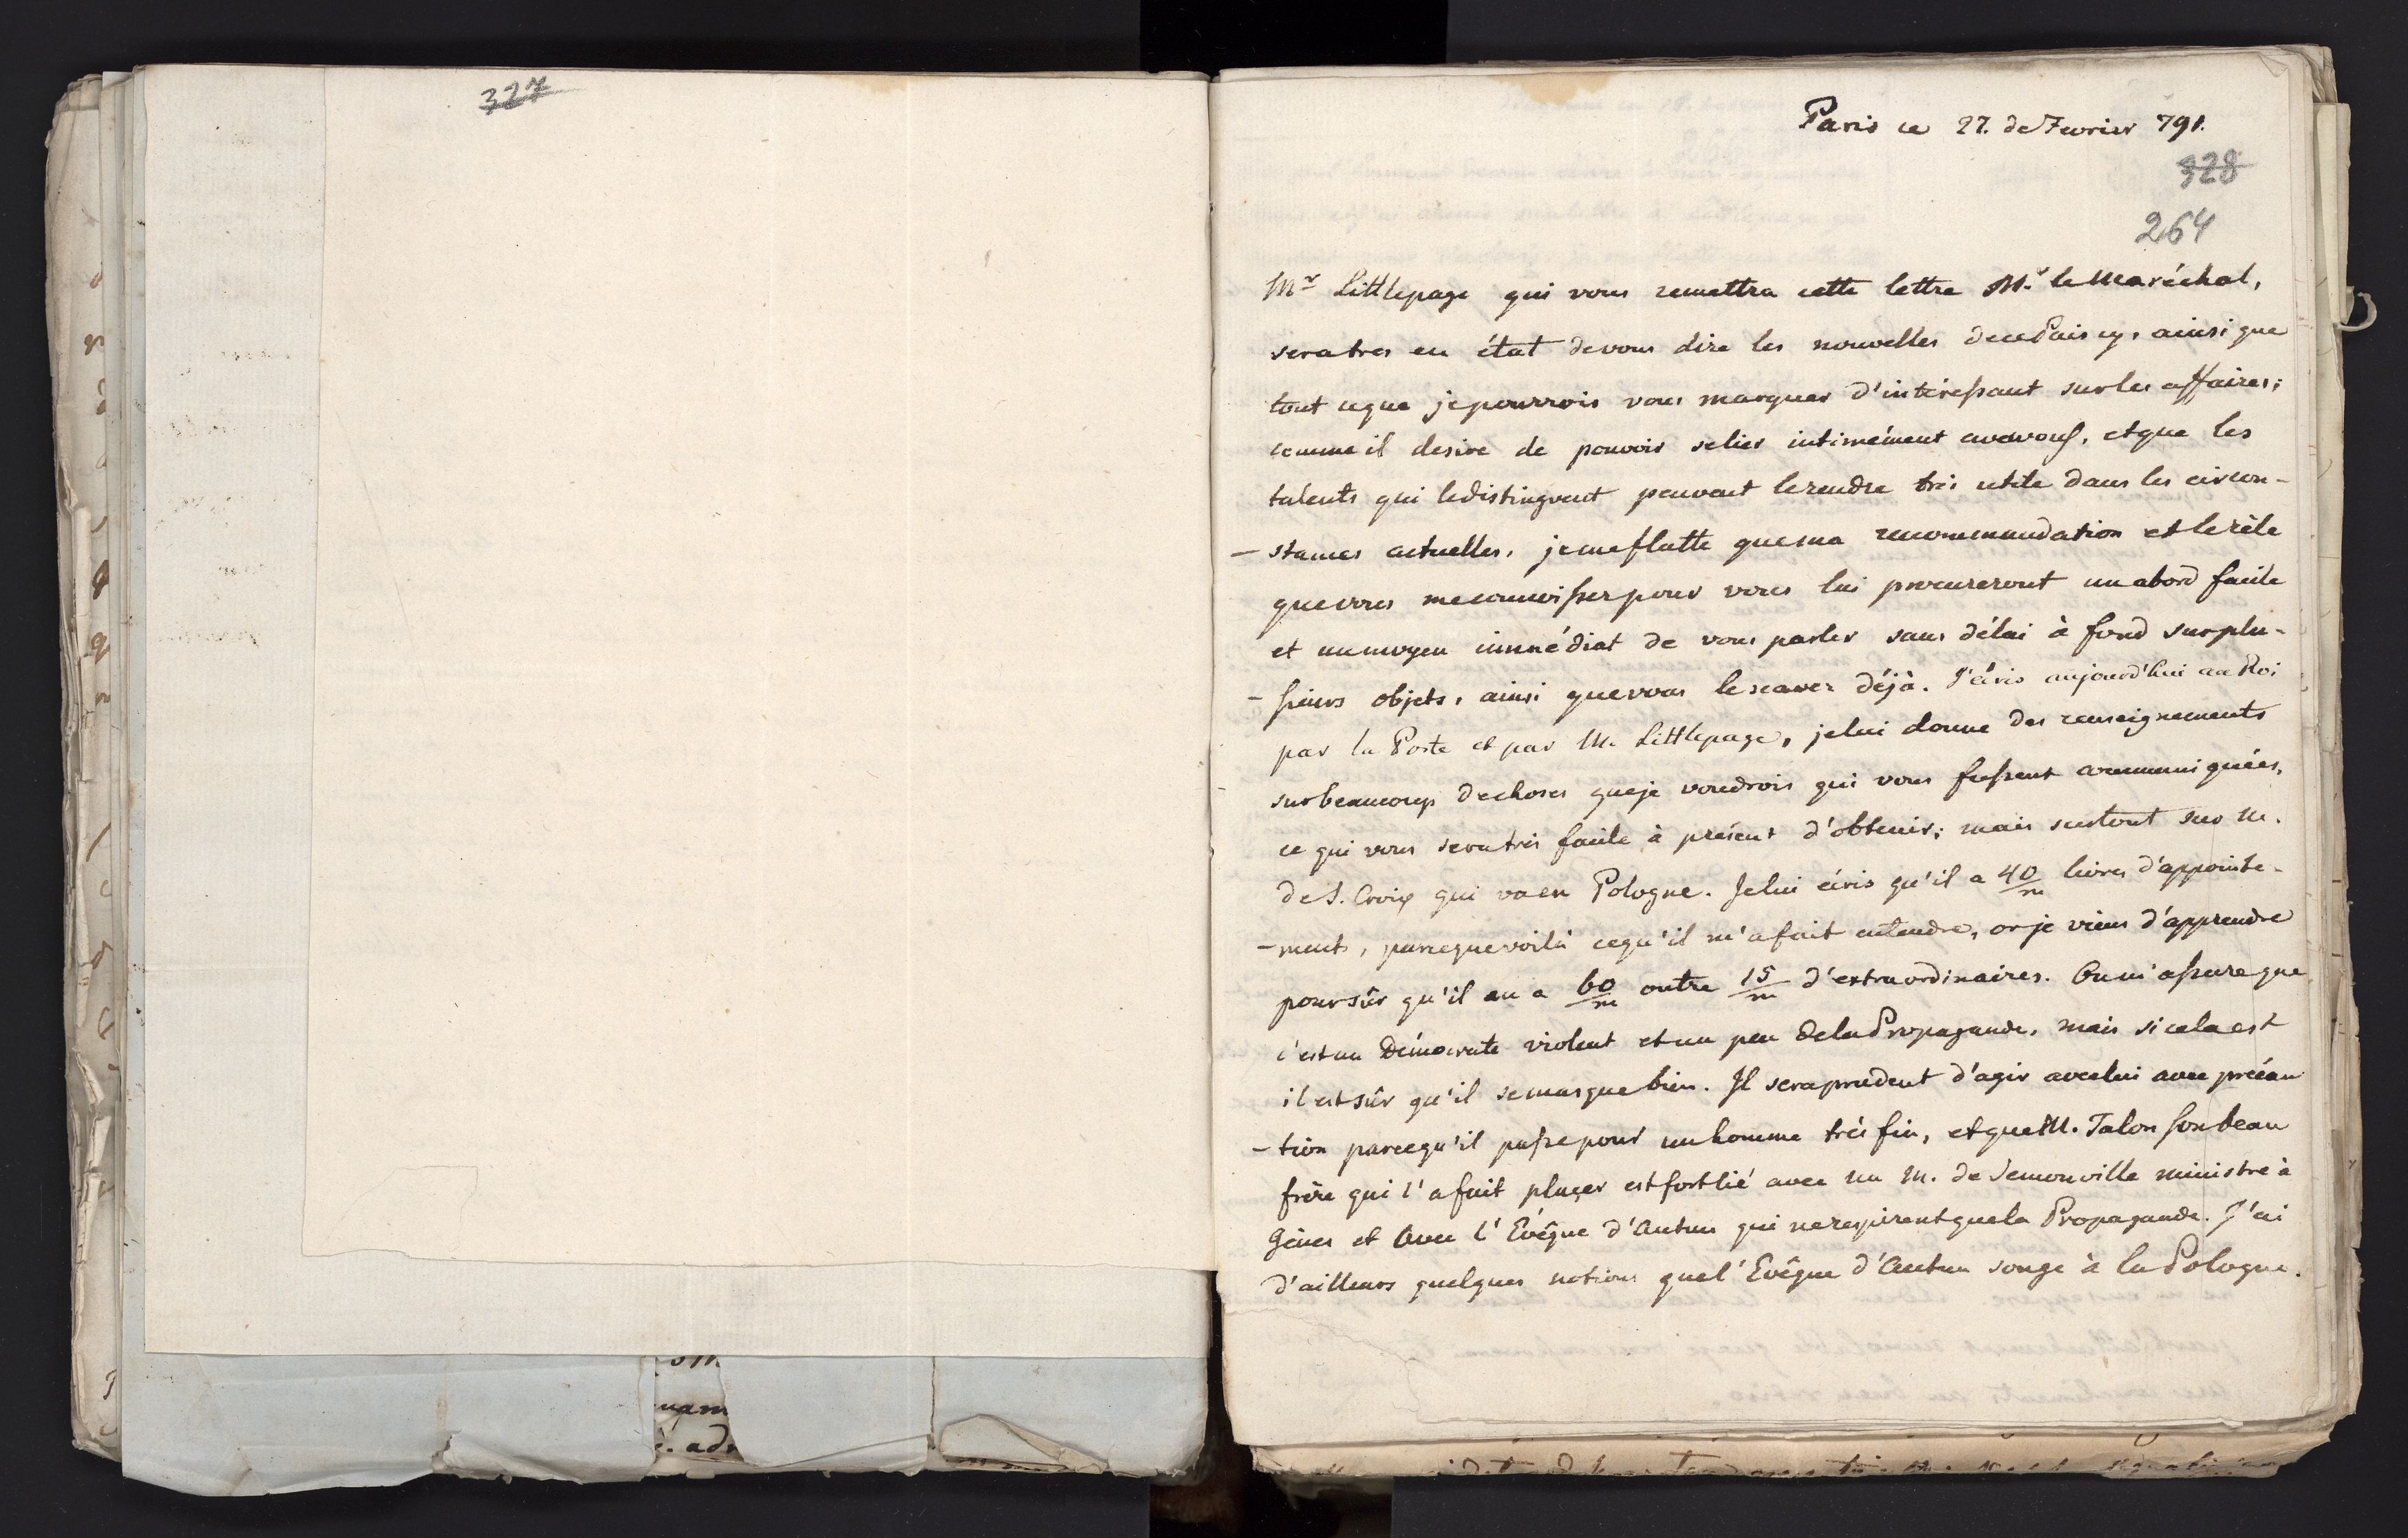 327
Paris ce 27. de Fevrier 791.
328
264
Mr Littlepage qui vous remettra cette lettre Mr. le Maréchal,
sera tres en état de vous dire les nouvelles de ce Pais cy, ainsi que
tout ce que je pourrois vous marquer d'intéressant sur les affaires;
comme il desire de pouvoir se lier intimément avec vous, et que les
talents qui le distinguent peuvent le rendre très utile dans les circon-
-stances actuelles, je me flatte que ma recommendation et le zèle
que vous me connoissez pour vous lui procureront un abord facile
et un moyen immédiat de vous parler sans délai à fond sur plu-
-sieurs objets, ainsi que vous le scavez déjà. J'écris aujourd'hui au Roi
par la Poste et par M. Littlepage, je lui donne des renseignements
sur beaucoup de choses que je voudrois qui vous fussent communiquées,
ce qui vous sera très facile à présent d'obtenir; mais surtout sur M.
de S. Croix qui va en Pologne. Je lui écris qu'il a 40/m livres d'appointe-
-ments, parceque voilà ce qu'il m'a fait entendre, or je viens d'apprendre
pour sûr qu'il en a 60/m outre 15/m d'extraordinaires. On m'assure que
c'est un Démocrate violent et un peu de la Propagande, mais si cela est
il est sûr qu'il se masque bien. Il sera prudent d'agir avec lui avec précau
-tion parcequ'il passe pour un homme très fin, et que M. Talon son beau
frère qui l'a fait plaçer est fort lié avec un M. de Semonville ministre à
Gènes et avec l'Évêque d'Autun qui ne respirent que la Propagande. J'ai
d'ailleurs quelques notions que l'Evêque d'Autun songe à la Pologne.